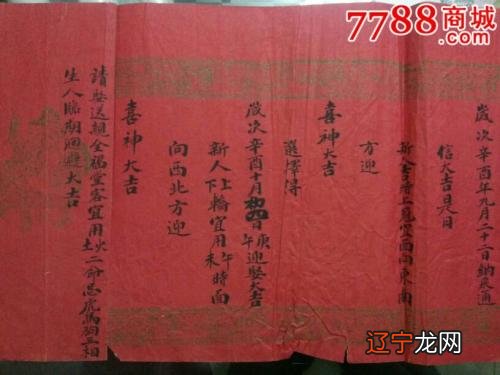 7788商城
歲次辛酉年九月二十二日納采通
信大吉是日
新人面向東南
方迎
喜神大吉
選擇得
歲次辛酉十月初四日庚午迎娶大吉
新人上下輪宜用午未時面
向西北方迎
喜神大吉
請娶送親全福堂客宜用火土二命忌虎馬狗三相
生人臨期迴避大吉
辽宁龙网